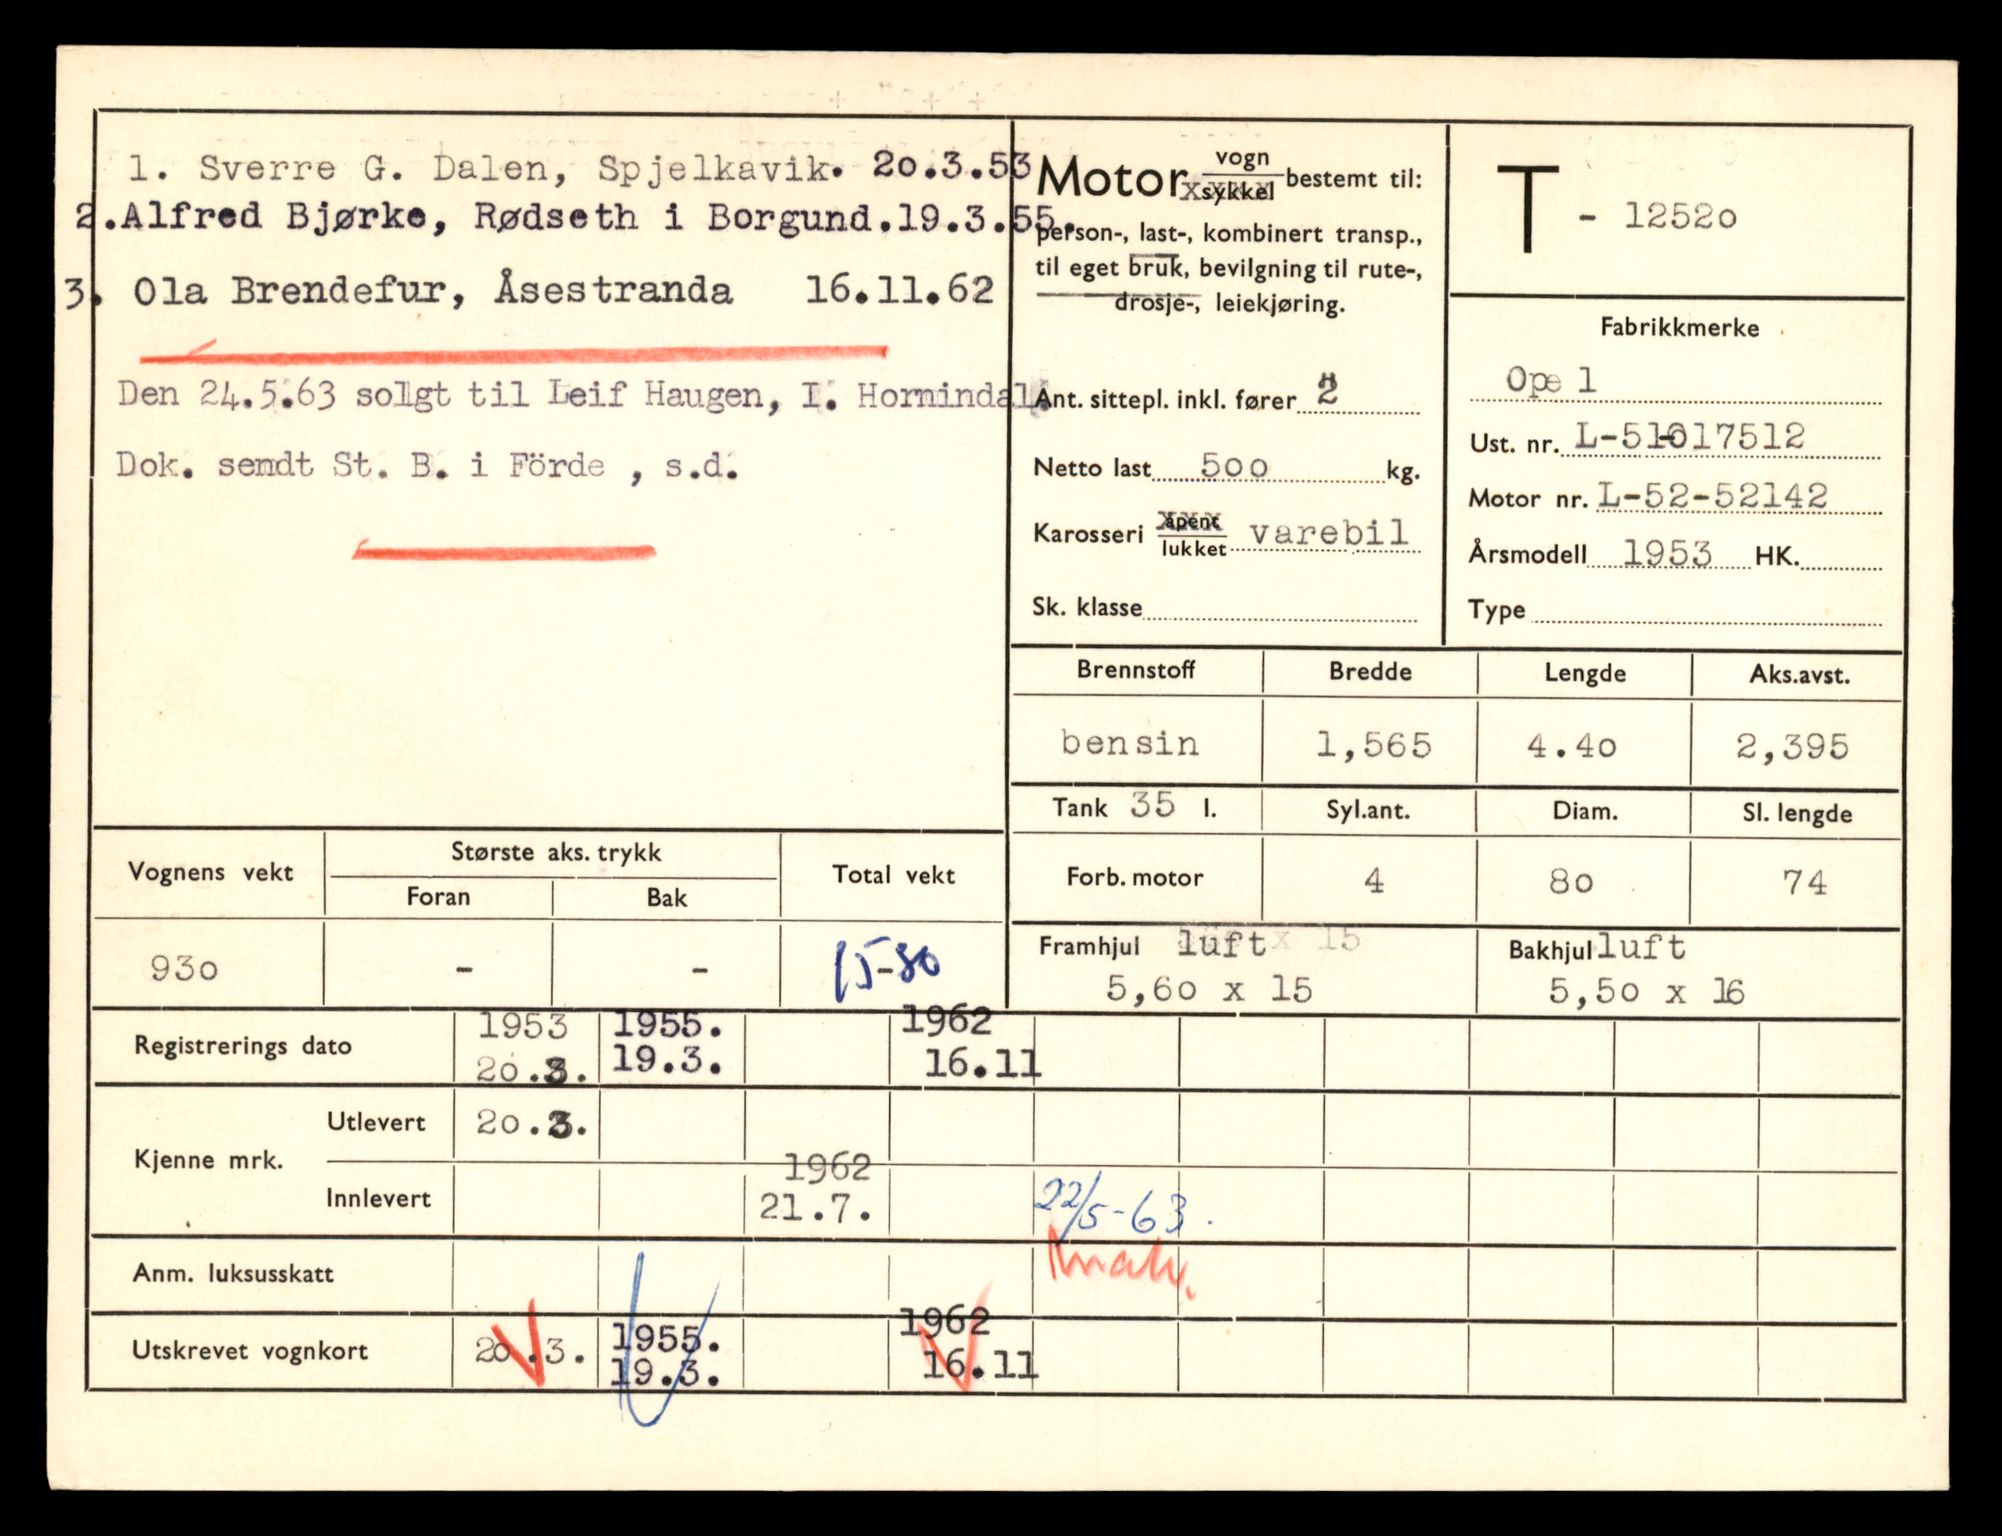 1. Sverre G. Dalen, Spjelkavik. 20.3.53
2. Alfred Bjørke, Rødseth i Borgund. 19.3.55.
3. Ola Brendefur, Åsestranda 16.11.62
Den 24.5.63 solgt til Leif Haugen, I. Hornindal.
Dok. sendt St. B. i Förde , s.d.
Motor vogn
sykkel bestemt til:
person-, last-, kombinert transp.,
til eget bruk, bevilgning til rute-,
drosje-, leiekjøring.
Ant. sittepl. inkl. fører 2
Netto last 500 kg.
Karosseri åpent
lukket varebil
Sk. klasse
T - 12520
Fabrikkmerke
Opel
Ust. nr. L-51-017512
Motor nr. L-52-52142
Årsmodell 1953 HK.
Type
Brennstoff Bredde Lengde Aks.avst.
bensin 1,565 4.40 2,395
Tank 35 l. Syl.ant. Diam. Sl. lengde
Forb. motor 4 80 74
Framhjul luft x 15 Bakhjul luft
5,60 x 15 5,50 x 16
Vognens vekt Største aks. trykk Total vekt
Foran Bak
930 - - 15-80
Registrerings dato 1953 1955. 1962
20.3. 19.3. 16.11
Kjenne mrk. Utlevert 20.3.
1962
Innlevert 21.7. 22/5-63.
Anm. luksusskatt
1962
Utskrevet vognkort 20.3. 1955.
19.3. 16.11